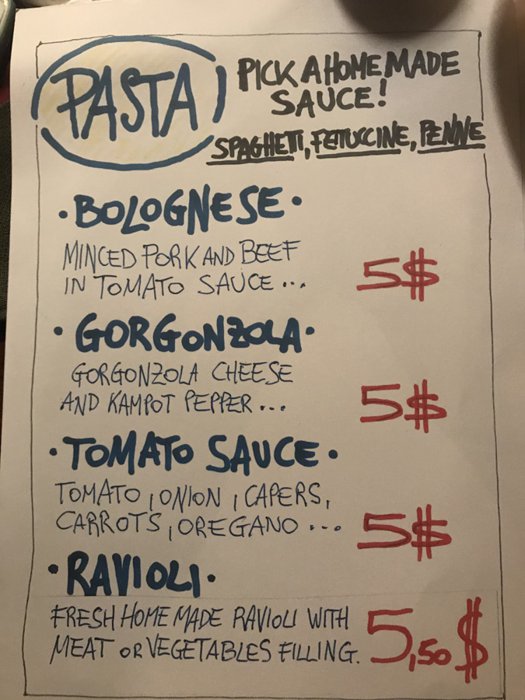 PASTA
PICK A HOME MADE
SAUCE!
SPAGHETI, FETUCCINE, PENNE
• BOLOGNESE •
MINCED PORK AND BEEF
IN TOMATO SAUCE ... 5$
• GORGONZOLA •
GORGONZOLA CHEESE
AND KAMPOT PEPPER ... 5$
• TOMATO SAUCE •
TOMATO, ONION, CAPERS,
CARROTS, OREGANO ... 5$
• RAVIOLI •
FRESH HOME MADE RAVIOLI WITH
MEAT OR VEGETABLES FILLING. 5,50$